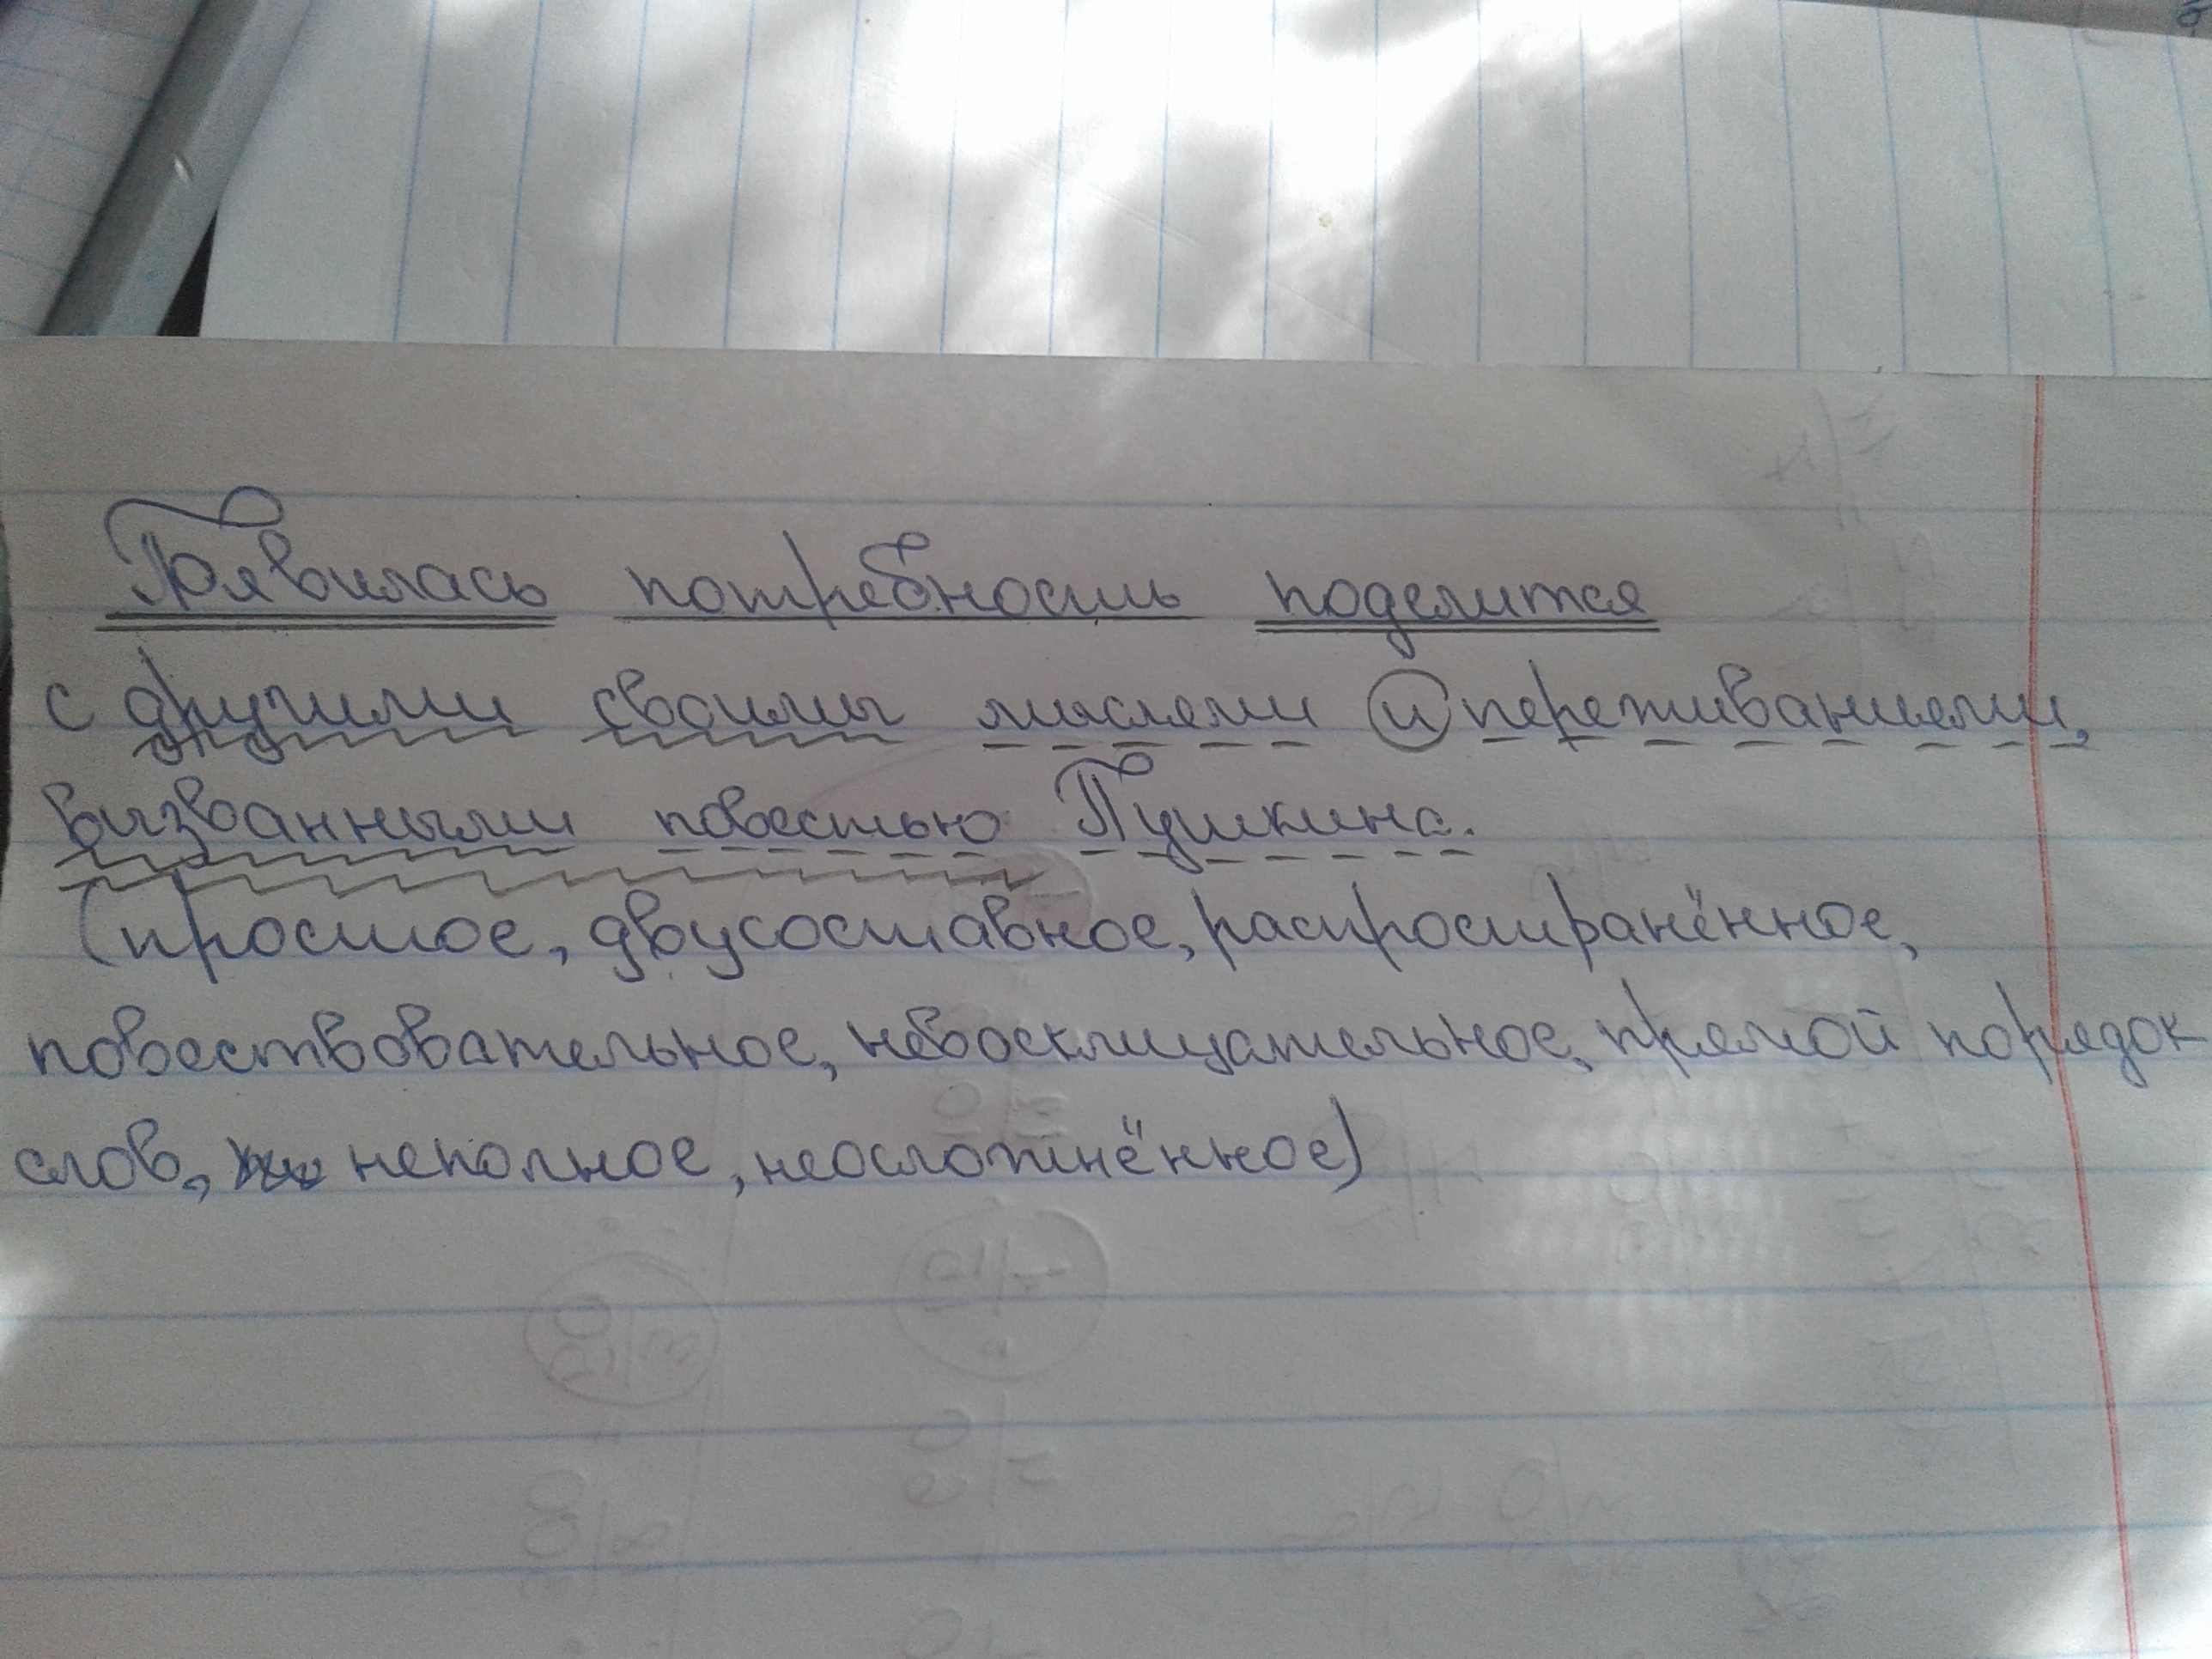 Появилась потребность поделится
с другими своими мыслями и переживаниями,
визванными повестью Пушкина.
(простое, двусоставное, распространённое,
повествовательное, невосклицательное, прямой порядок
слов, неполное, неосложнённое)